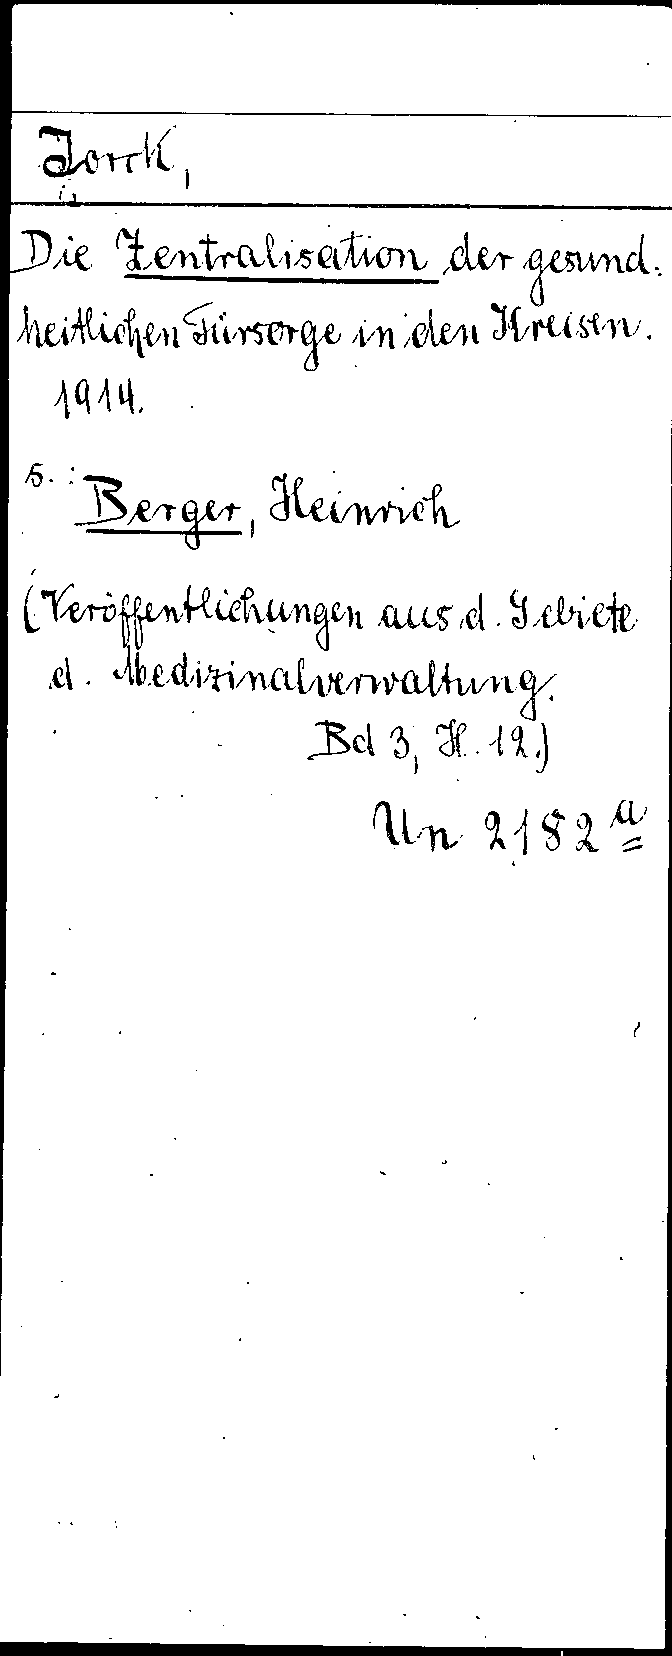 Jorck,
Die Zentralisation der gesund-
heitlichen Fürsorge in den Kreisen.
1914.
s.:
Berger, Heinrich
(Veröffentlichungen aus d. Gebiete
d. Medizinalverwaltung.
Bd 3, H. 12.)
Un 2182 a